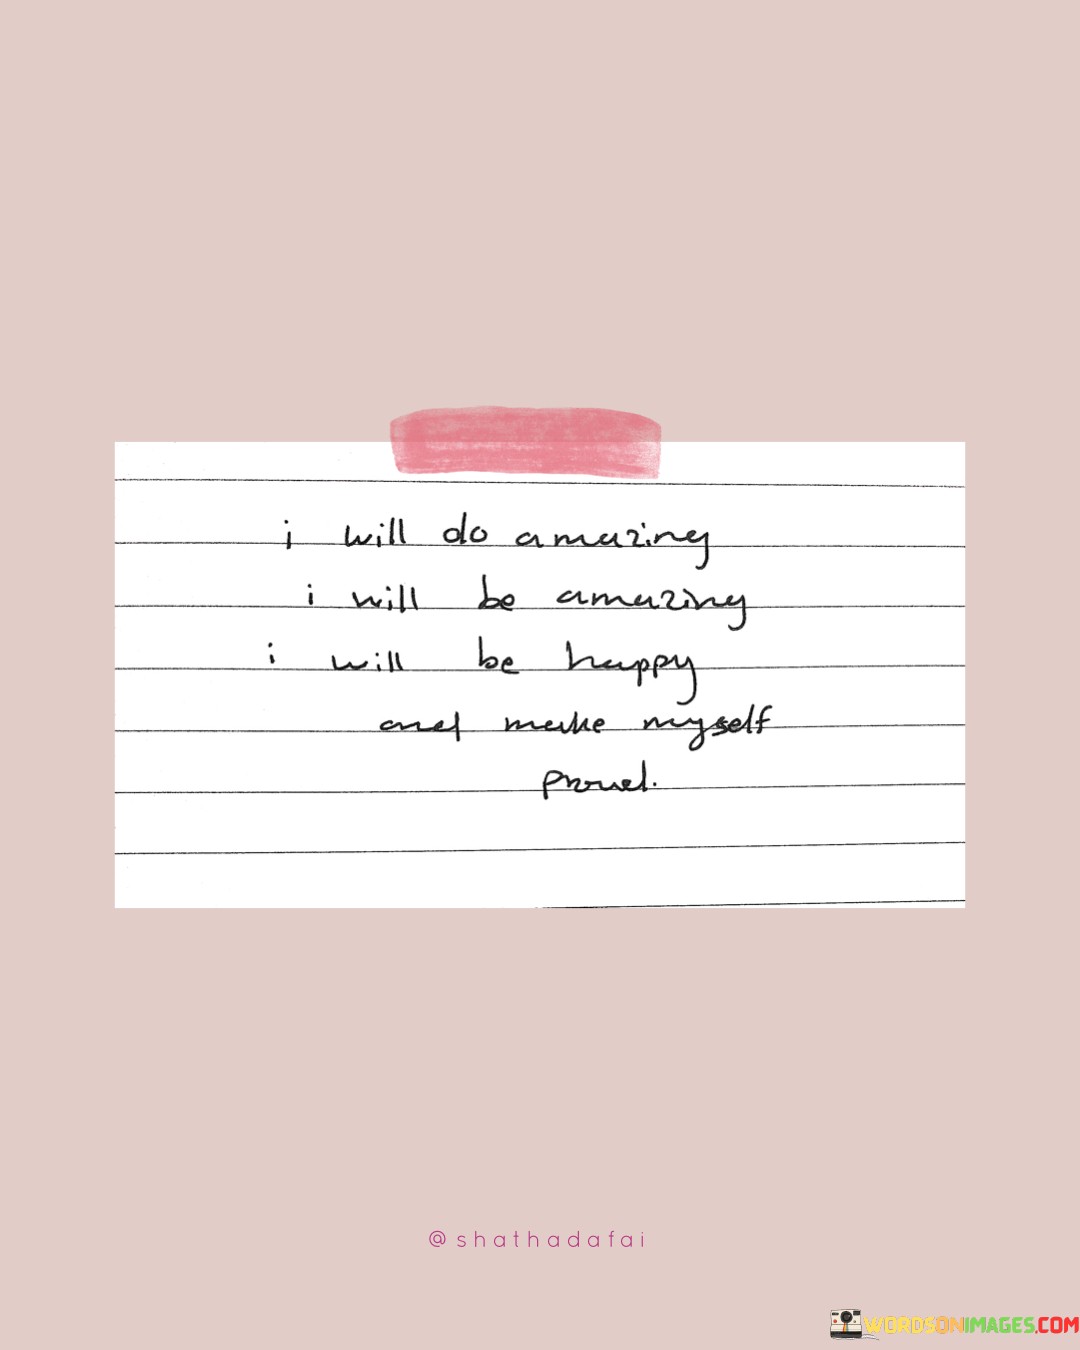 i will do amazing
i will be amazing
i will be happy
and make myself
proud.
@shathadafai
WORDSONIMAGES.COM